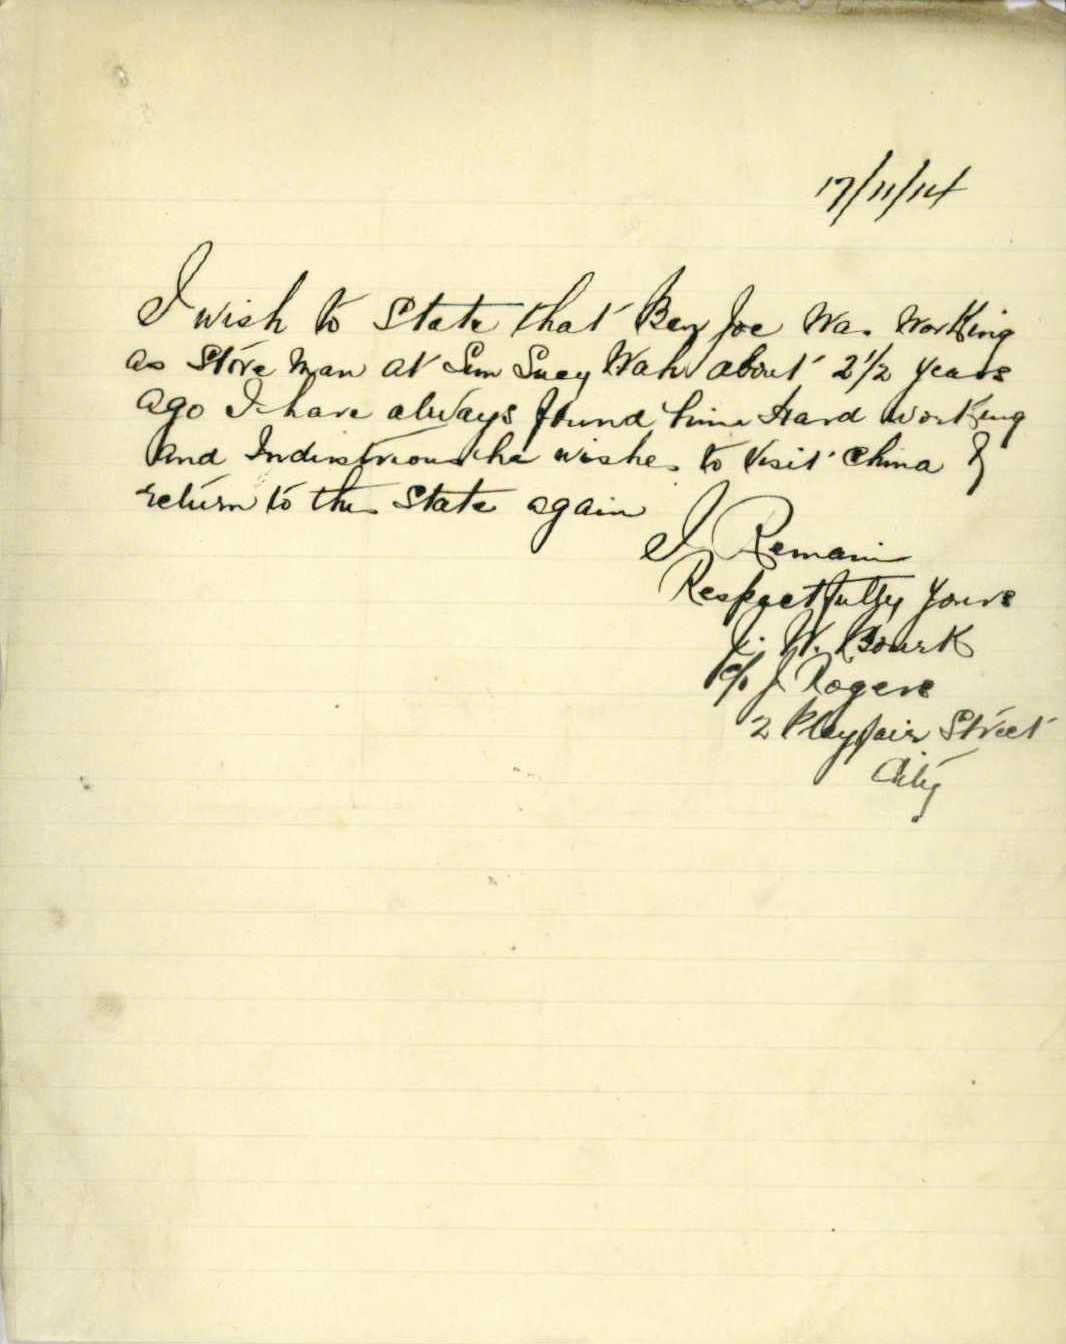 17/11/14
I wish to State that Bey Joe Was Working
as Store Man at Sun Suey Wah about 2 1/2 years
ago I have always found him Hard working
and Industrious he wishes to visit China &
return to this State again
I Remain
Respectfully Yours
W. Bourk
c/o J Rogers
2 Playfair Street
City